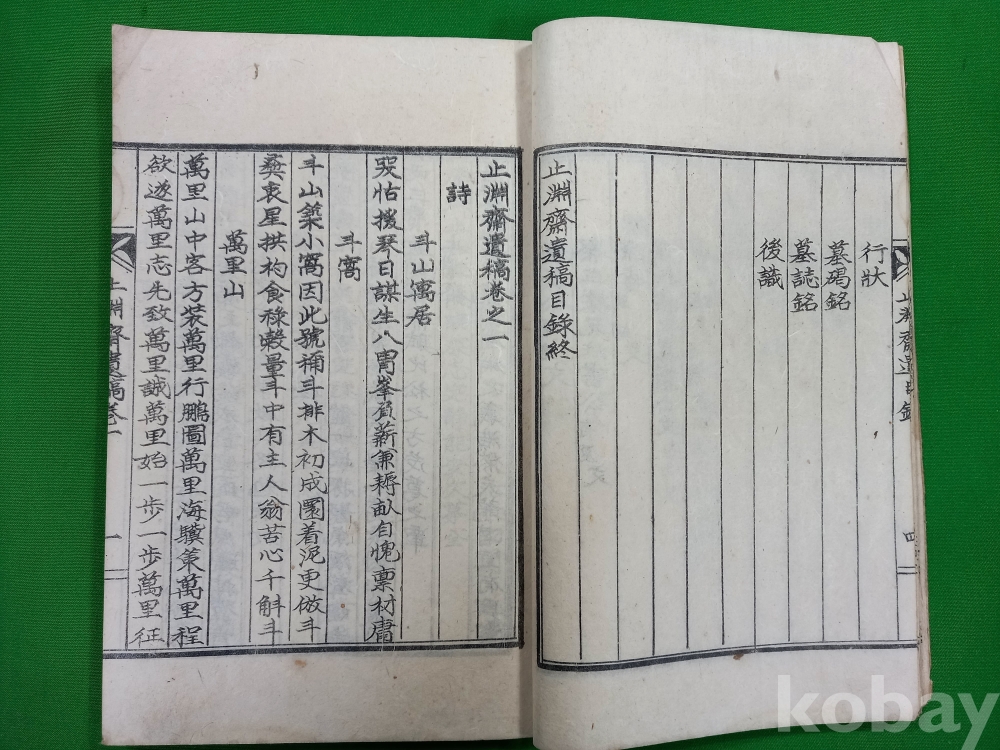 行狀
墓碣銘
墓誌銘
後識
止淵齋遺稿目錄終
四
止淵齋遺稿卷之一
詩
斗山寓居
哭怙援琴日謀生八胄峯負薪兼耨畝自愧稟材庸
斗窩
斗山築小窩因此號稱斗排木初成圜着泥更倣斗
彛衷星拱杓食祿穀量斗中有主人翁苦心千斛斗
萬里山
萬里山中客方裝萬里行鵬圖萬里海驥策萬里程
欲遂萬里志先致萬里誠萬里始一步一步萬里征
止淵齋遺稿卷一
一
kobay